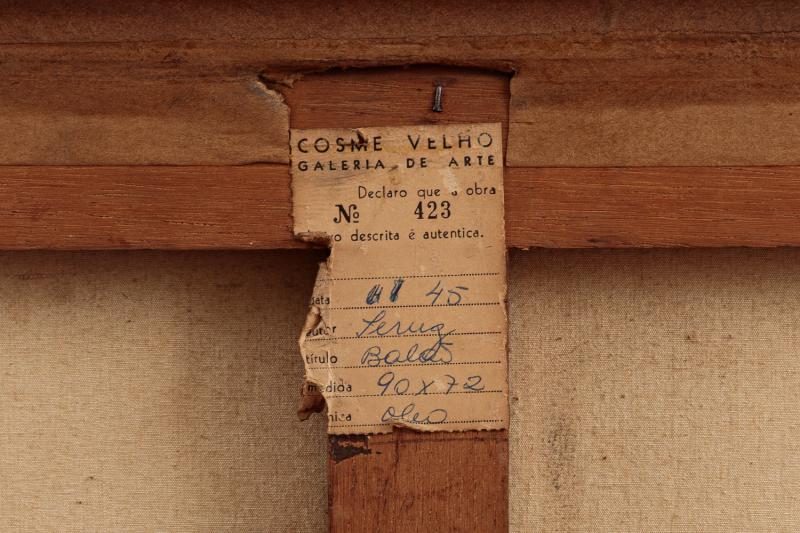 COSME VELHO
GALERIA DE ARTE
Declaro que a obra
Nº 423
descrita é autentica.
45
autor
título Balão
medida 90 x 72
oleo